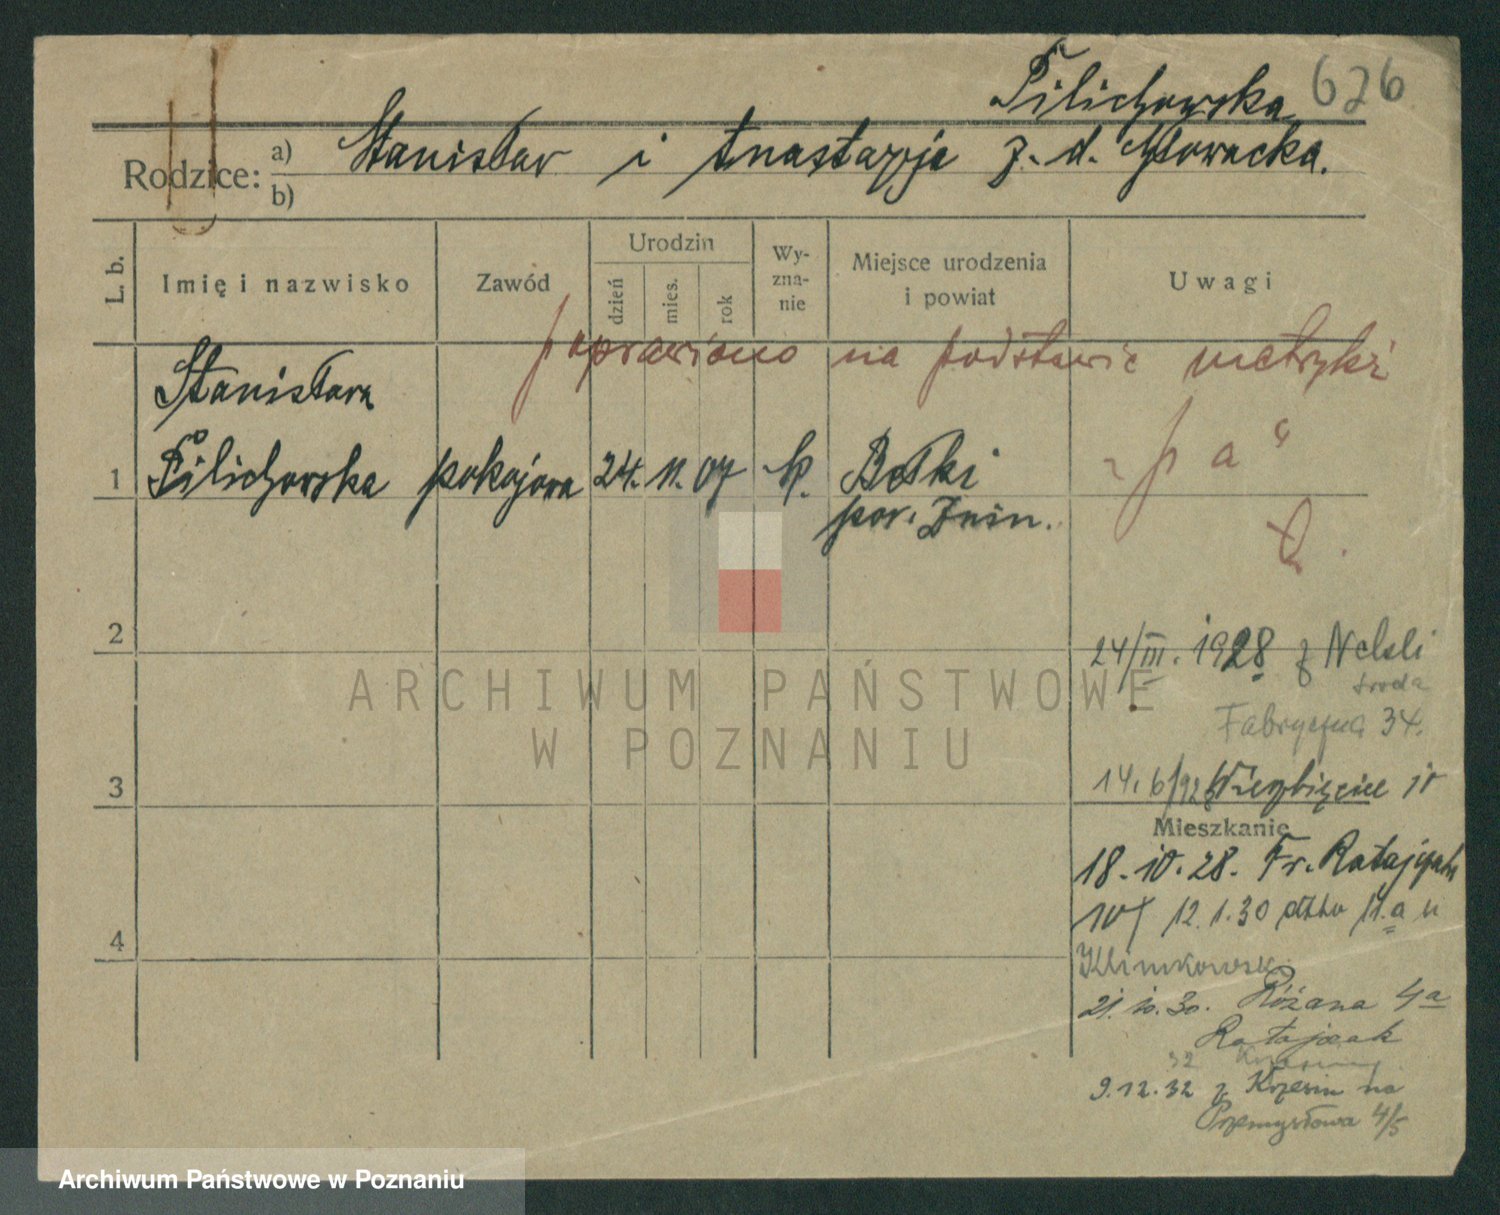 Filichowska 626
Rodzice: a) Stanisław i Anastazja z. d. Głowacka.
b)
L. b. Imię i nazwisko Zawód Urodzin dzień mies. rok Wy-zna-nie Miejsce urodzenia i powiat Uwagi
poprawiono na podstawie metryki
Stanisława
„p a"
1 Filichowska pokojowa 24. 11. 07 k. Bełki
pow. Żnin.
2
24/III. 1928 z Nekli
środa
Fabryczna 34.
3
14. 6/928 Wierzbięcice 10
Mieszkanie
18. 10. 28. Fr. Ratajczaka
10 12. 1. 30 dtto 11.a u
4
Klimkowsk
21. 10. 30. Różana 4a
Ratajczak
32
9. 12. 32 z Krzesin na
Przemysłowa 4/5
ARCHIWUM PAŃSTWOWE
W POZNANIU
Archiwum Państwowe w Poznaniu